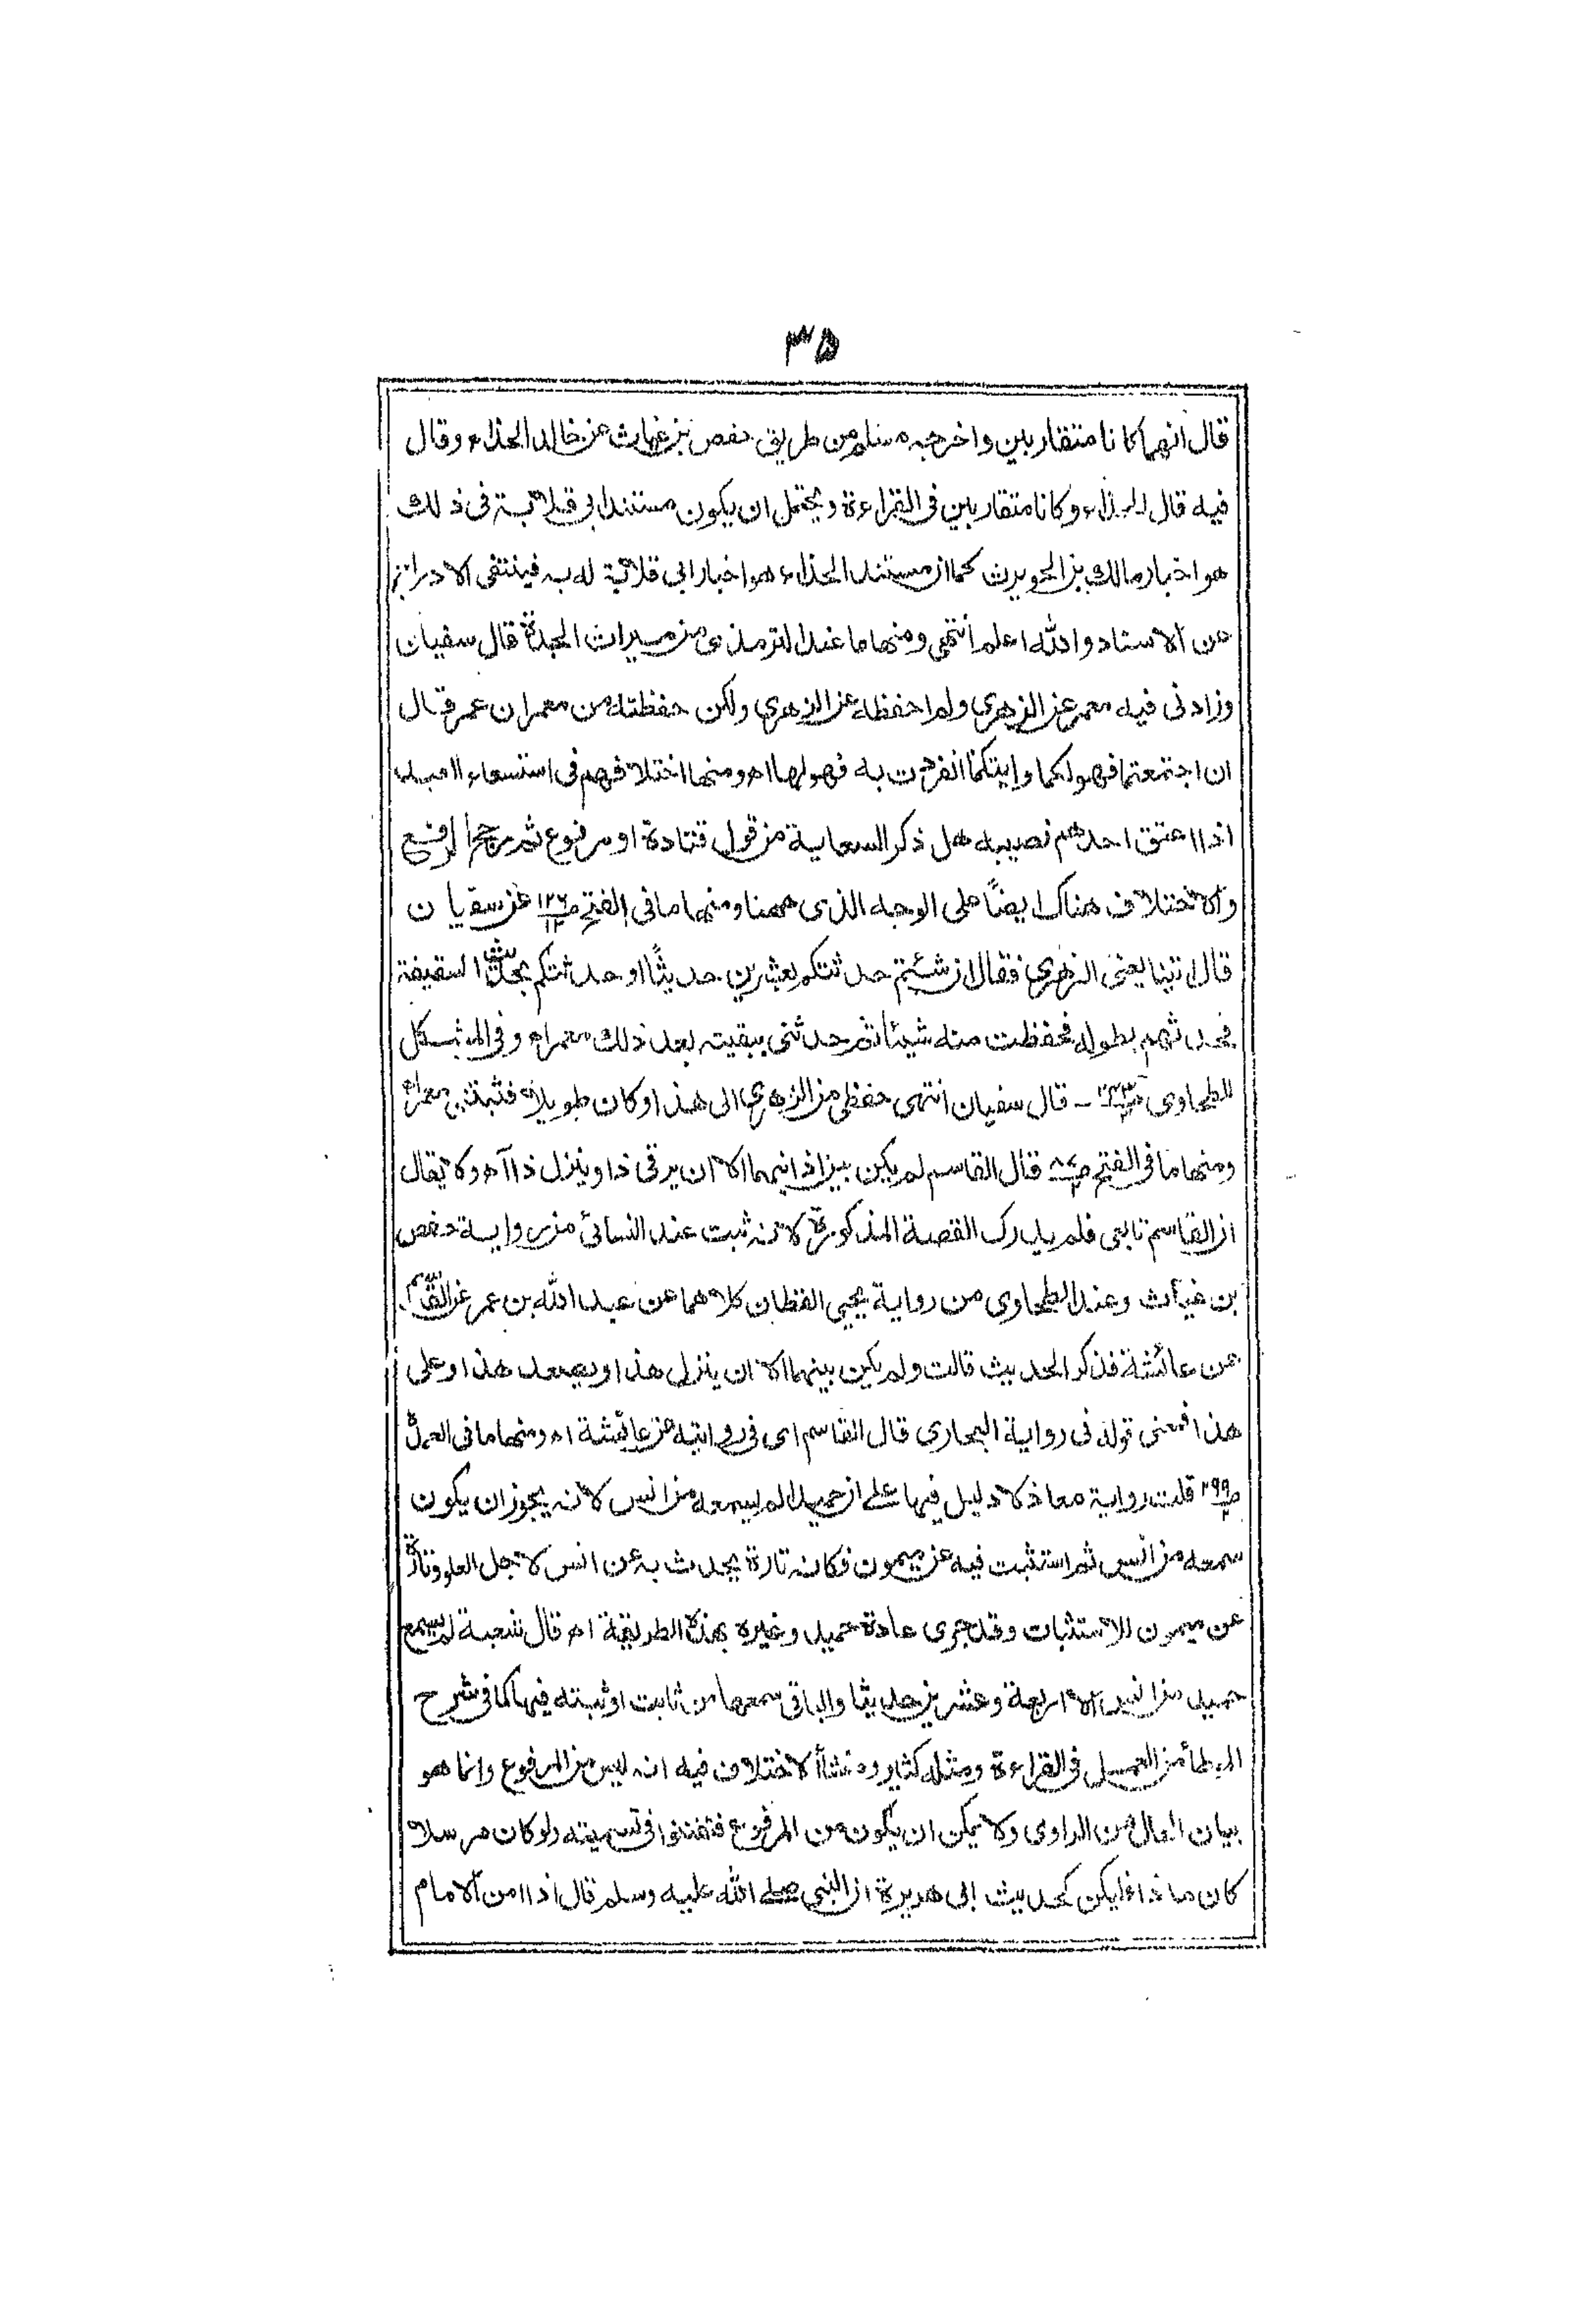 ٣٥
قال انهما كانا متقاربين واخرجه مسلم من طريق حفص بن غياث عن خالد الحذاء وقال
فيه قال الحذاء وكانا متقاربين فى القراءة ويحتمل ان يكون مستندا بى قلابة فى ذلك
هو اخبار مالك بن الحويرث كما ان مستند الحذاء هو اخبار ابى قلابة له به فينتفى الادراج
عن الاسناد والله اعلم انتهى ومنها ما عند الترمذى من ميراث الجدة قال سفيان
وزادنى فيه معمر عن الزهرى ولم احفظه عن الزهرى ولكن حفظته من معمر ان عمر قال
ان اجتمعتما فهو لكما وايتكما انفردت به فهو لها اه ومنها اختلافهم فى استسعاء العبد
اذا اعتق احدهم نصيبه هل ذكر السعاية من قول قتادة او مرفوع ثم رجح الرفع
والاختلاف هناك ايضًا على الوجه الذى ههنا ومنها ما فى الفتح عن سفيان
قال اتينا يعنى الزهرى فقال ان شئتم حدثتكم بعشرين حديثًا او حدثتكم بحديث السقيفة
فحدثهم بطوله فحفظت منه شيئا ثم حدثنى ببقيته بعد ذلك معمر اه وفى المشكل
للطحاوى قال سفيان انتهى حفظى من الزهرى الى هذا وكان طويلا فثبتنى معمر اه
ومنها ما فى الفتح قال القاسم لم يكن بين اذانيهما الا ان يرقى ذا وينزل ذا اه ولا يقال
ان القاسم تابعى فلم يدرك القصة المذكورة لانه ثبت عند النسائى من رواية حفص
بن غياث وعند الطحاوى من رواية يحيى القطان كلاهما عن عبد الله بن عمر عن القاسم
عن عائشة فذكر الحديث قالت ولم يكن بينهما الا ان ينزل هذا ويصعد هذا وعلى
هذا فمعنى قوله فى رواية البخارى قال القاسم اى فى روايته عن عائشة اه ومنها ما فى العمدة
ص٢٩٩ قلت رواية معاذ لا دليل فيها على ان حميدا لم يسمعه من انس لانه يجوز ان يكون
سمعه من انس ثم استثبت فيه عن ميمون فكانه تارة يحدث به عن انس لاجل العلو وتارة
عن ميمون للاستثبات وقد جرى عادة حميد وغيره بهذه الطريقة اه قال شعبة لم يسمع
حميد من انس الا اربعة وعشرين حديثا والباقى سمعها من ثابت او ثبته فيها كما فى شرح
الموطأ من العمل فى القراءة ومثله كثير ومنشأ الاختلاف فيه انه ليس من المرفوع وانما هو
بيان الحال من الراوى ولا يمكن ان يكون من المرفوع فتفننوا فى تسميته ولو كان مرسلا
كان ماذا فليكن كحديث ابى هريرة ان النبى صلے الله عليه وسلم قال اذا امن الامام